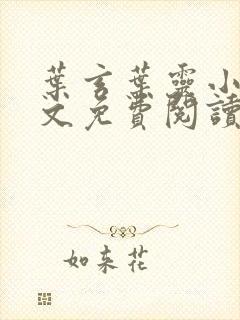 葉言葉靈小
文免費閱讀
如来花